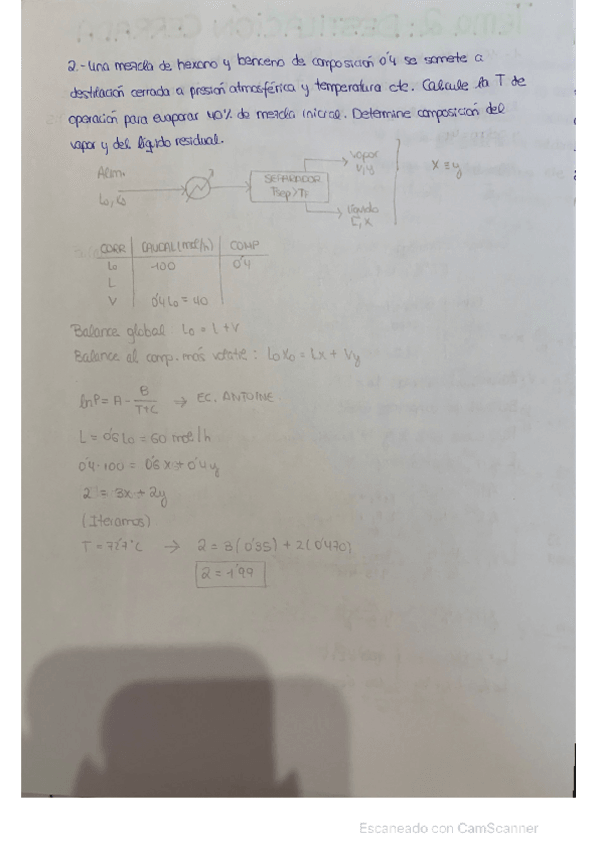 2.- Una mezcla de hexano y benceno de composición 0'4 se somete a
destilación cerrada a presión atmosférica y temperatura cte. Calcule la T de
operación para evaporar 40% de mezcla inicial. Determine composición del
vapor y del líquido residual.
Alim.
L₀, 
SEPARADOR
vapor
V, y
líquido
L, x
x ≡ y
CORR CAUDAL (mol/h) COMP
L₀ 100 0'4
L
V 0'4 L₀ = 40
Balance global: L₀ = L + V
Balance al comp. más volátil: L₀x₀ = Lx + Vy
lnP = A - B/(T+C) → EC. ANTOINE
L = 0'6 L₀ = 60 mol/h
0'4·100 = 0'6 x + 0'4 y
2 = 3x + 2y
(Iteramos)
T = 71'7°C → 2 = 3(0'35) + 2(0'470)
2 = 1'99
Escaneado con CamScanner